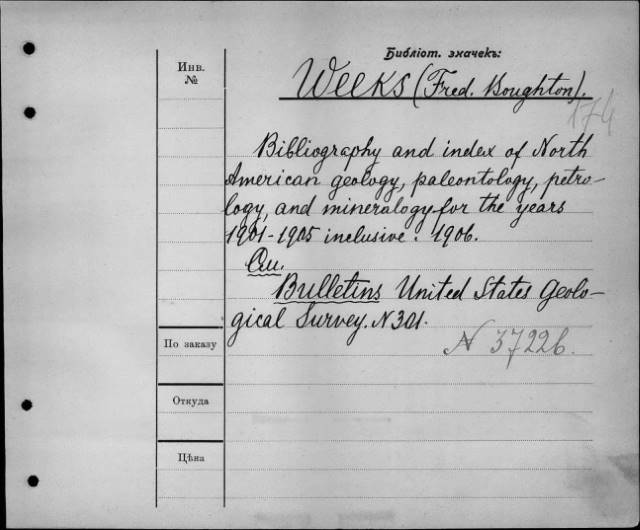 Библіот. значекъ:
Инв. №
Weeks (Fred. Boughton).
174
Bibliography and index of North
American geology, paleontology, petro-
logy, and mineralogy for the years
1901-1905 inclusive. 1906.
См.
Bulletins United States Geolo-
gical Survey. N 301.
По заказу
N 37226.
Откуда
Цѣна